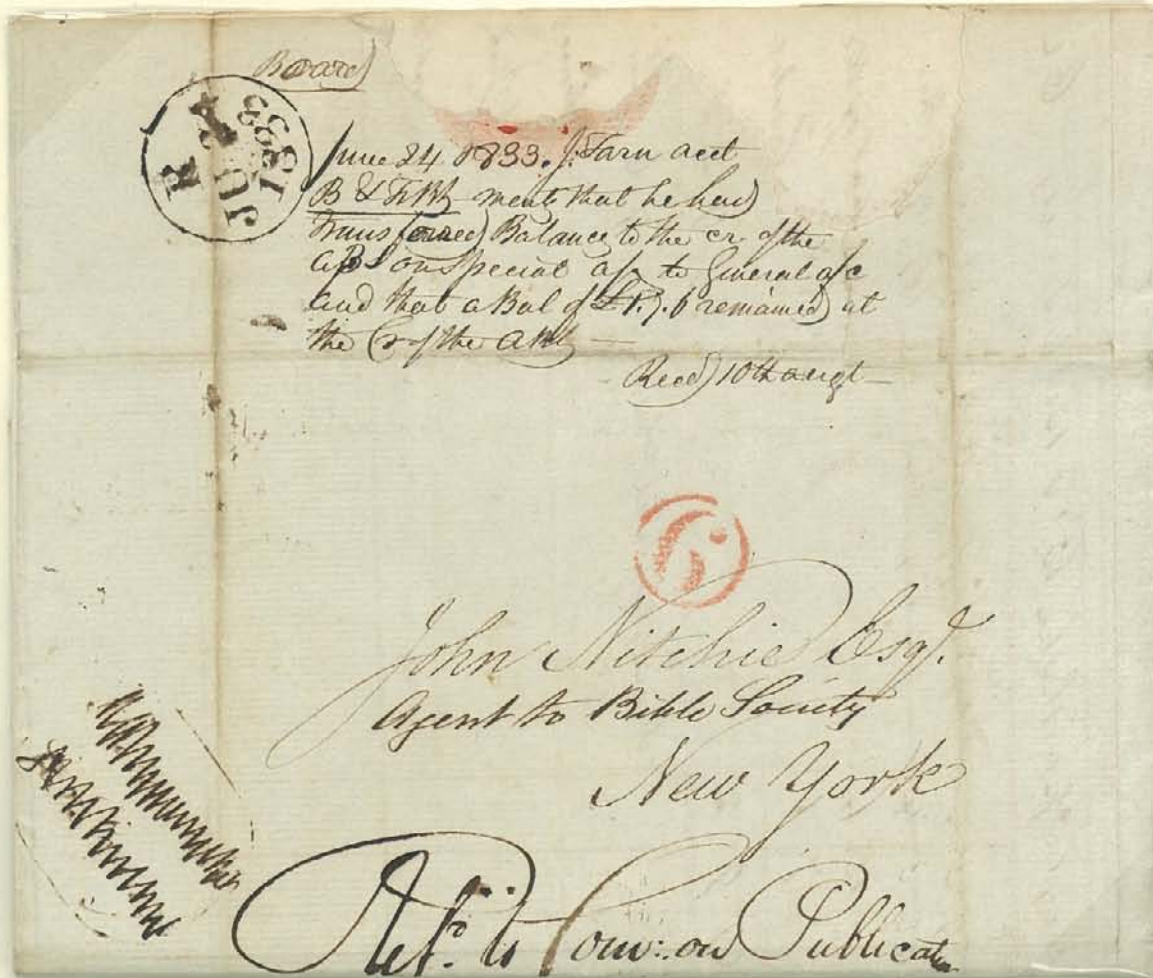 Board
R
4
JU
1833
June 24 1833. J. Tarn acct
B & F.B.S. ments that he had
Transferred Balance to the cr. of the
ABS on Special a/c to General a/c
and that a Bal of £ 1. 7. 6 remained at
the Cr of the ABS —
Recd 10th augt —
6
John Nitchie Esqr.
Agent to Bible Society
New York
Refd. to Com: on Publication